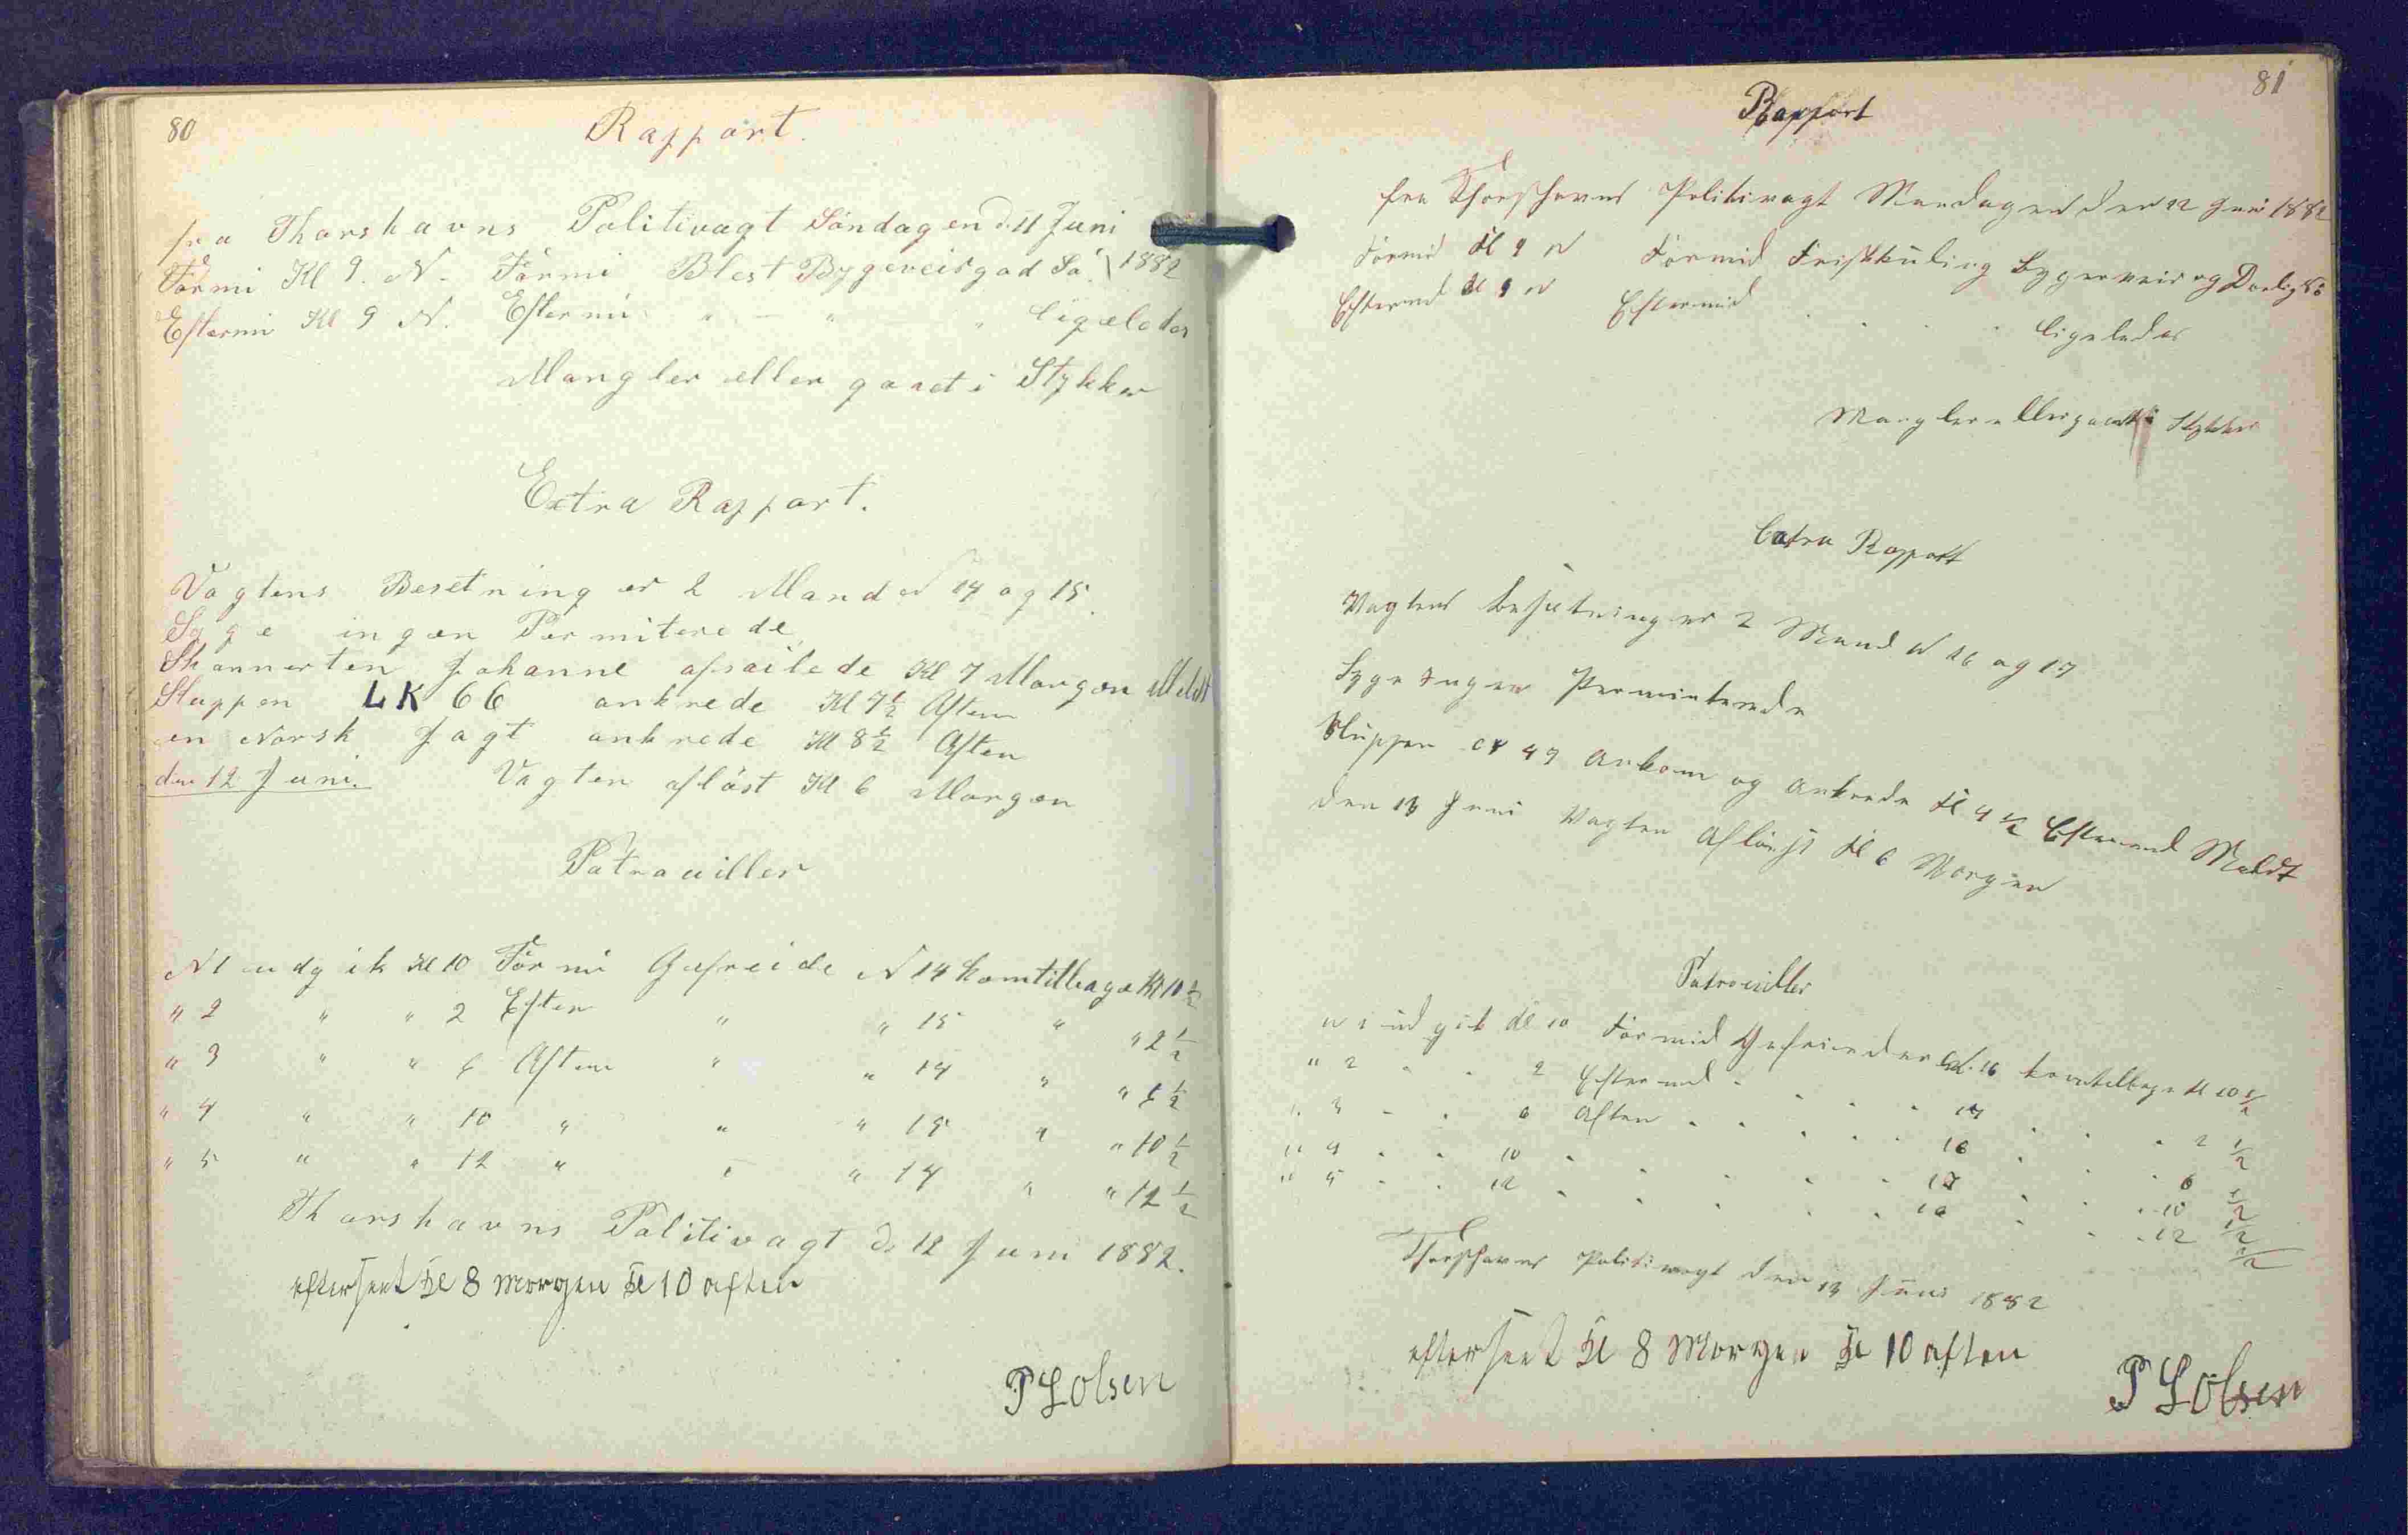 80
Rapport.
fra Thorshavns Politivagt Söndagen d. 11 Juni
Formi Kl 9. N. Formi Blest Bygeveirgod Sö. 1882
Eftermi Kl 9 N. Eftermi " — " " ligeledes
Mangler eller gaaet i Stykker
Extra Rapport.
Vagtens Besetning er 2 Mand N 14 og 15.
Syge ingen Permiterede
Skonnerten Johanne afsailede Kl 7 Morgen Meldt
Sluppen LK 66 ankrede Kl 7½ Aften
en Norsk Jagt ankrede Kl 8½ Aften
den 12 Juni. Vagten aflöst Kl 6 Morgen
Patrouiller
N 1 udgik Kl 10 Formi Gefreide N 14 kom tilbage Kl 10½
" 2 " " 2 Efter " " 15 " " 2½
" 3 " " 6 Aften " " 14 " " 6½
" 4 " " 10 " " " 15 " " 10½
" 5 " " 12 " " " 14 " " 12½
Thorshavns Politivagt d. 12 Juni 1882.
efterseet Kl 8 Morgen Kl 10 aften
P L Olsen
81
Rapport
fra Thorshavns Politivagt Mandagen den 12 Juni 1882
Formid Kl 9 N Formid Friskkuling Bygerveir og Daarlig Sö
Eftermd Kl 9 N Eftermid . . . ligeledes
Mangler eller gaaet i Stykker
Extra Rapport
Vagtens besætning er 2 Mand N 16 og 17
Syge Ingen Permiterede
Sluppen 49 Ankom og Ankrede Kl 4½ Eftermd Meldt
den 13 Juni Vagten Aflöst Kl 6 Morgen
Patrouiller
N 1 udgik Kl 10 Formid Gefreider N. 16 kom tilbage Kl 10½
" 2 . . 2 Eftermd . . . 17 . . . 2½
" 3 . . 6 Aften . . . 16 . . . 6½
" 4 . . 10 . . . . 17 . . . 10½
" 5 . . 12 . . . . 16 . . . 12½
Thorshavns Politivagt den 13 Juni 1882
efterseet Kl 8 Morgen Kl 10 aften
P L Olsen